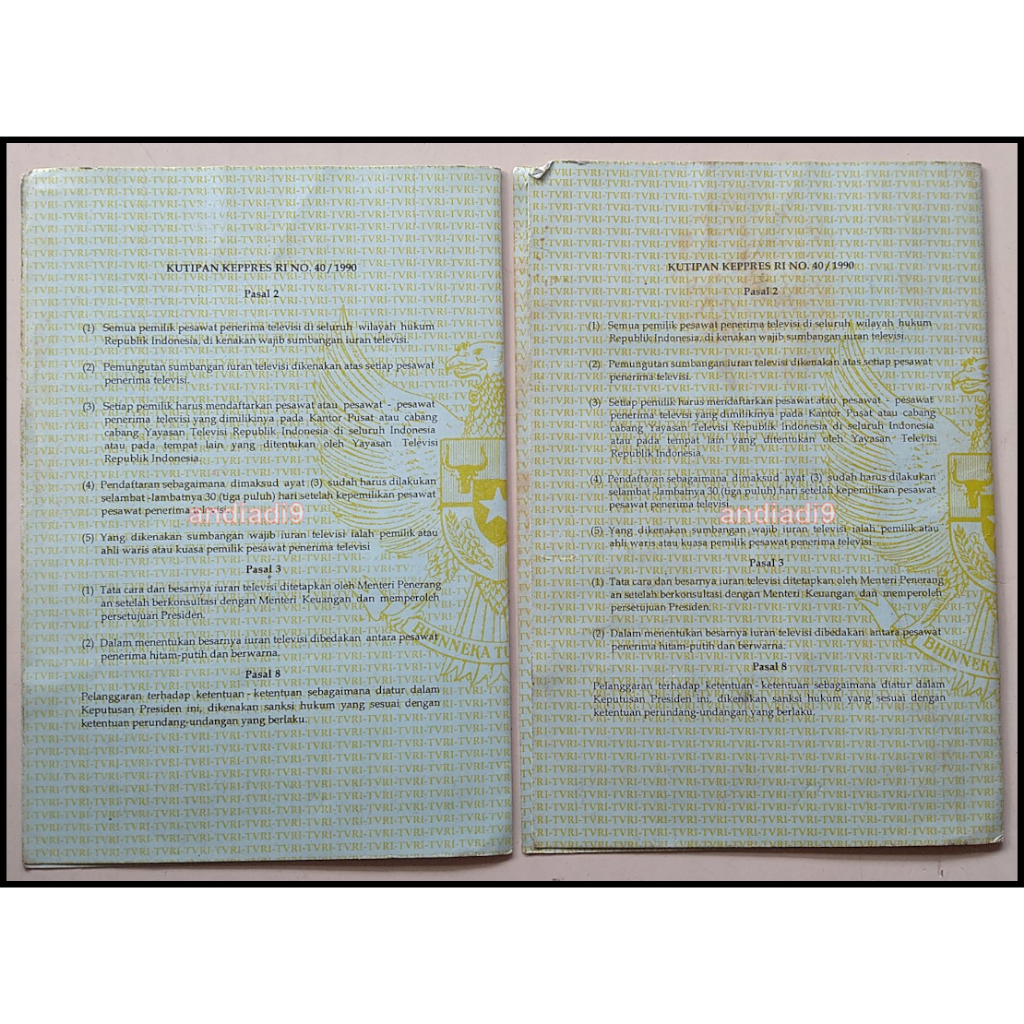 KUTIPAN KEPPRES RI NO. 40/1990
Pasal 2
(1) Semua pemilik pesawat penerima televisi di seluruh wilayah hukum
Republik Indonesia, di kenakan wajib sumbangan iuran televisi.
(2) Pemungutan sumbangan iuran televisi dikenakan atas setiap pesawat
penerima televisi.
(3) Setiap pemilik harus mendaftarkan pesawat atau pesawat - pesawat
penerima televisi yang dimilikinya pada Kantor Pusat atau cabang
cabang Yayasan Televisi Republik Indonesia di seluruh Indonesia
atau pada tempat lain yang ditentukan oleh Yayasan Televisi
Republik Indonesia.
(4) Pendaftaran sebagaimana dimaksud ayat (3) sudah harus dilakukan
selambat-lambatnya 30 (tiga puluh) hari setelah kepemilikan pesawat
pesawat penerima televisi.
andiadi9
(5) Yang dikenakan sumbangan wajib iuran televisi ialah pemilik atau
ahli waris atau kuasa pemilik pesawat penerima televisi
Pasal 3
(1) Tata cara dan besarnya iuran televisi ditetapkan oleh Menteri Penerang
an setelah berkonsultasi dengan Menteri Keuangan dan memperoleh
persetujuan Presiden.
(2) Dalam menentukan besarnya iuran televisi dibedakan antara pesawat
penerima hitam-putih dan berwarna.
BHINNEKA TU
Pasal 8
Pelanggaran terhadap ketentuan - ketentuan sebagaimana diatur dalam
Keputusan Presiden ini, dikenakan sanksi hukum yang sesuai dengan
ketentuan perundang-undangan yang berlaku.
KUTIPAN KEPPRES RI NO. 40/1990
Pasal 2
(1) Semua pemilik pesawat penerima televisi di seluruh wilayah hukum
Republik Indonesia, di kenakan wajib sumbangan iuran televisi.
(2) Pemungutan sumbangan iuran televisi dikenakan atas setiap pesawat
penerima televisi.
(3) Setiap pemilik harus mendaftarkan pesawat atau pesawat - pesawat
penerima televisi yang dimilikinya pada Kantor Pusat atau cabang
cabang Yayasan Televisi Republik Indonesia di seluruh Indonesia
atau pada tempat lain yang ditentukan oleh Yayasan Televisi
Republik Indonesia.
(4) Pendaftaran sebagaimana dimaksud ayat (3) sudah harus dilakukan
selambat-lambatnya 30 (tiga puluh) hari setelah kepemilikan pesawat
pesawat penerima televisi.
andiadi9
(5) Yang dikenakan sumbangan wajib iuran televisi ialah pemilik atau
ahli waris atau kuasa pemilik pesawat penerima televisi
Pasal 3
(1) Tata cara dan besarnya iuran televisi ditetapkan oleh Menteri Penerang
an setelah berkonsultasi dengan Menteri Keuangan dan memperoleh
persetujuan Presiden.
(2) Dalam menentukan besarnya iuran televisi dibedakan antara pesawat
penerima hitam-putih dan berwarna.
BHINNEKA
Pasal 8
Pelanggaran terhadap ketentuan - ketentuan sebagaimana diatur dalam
Keputusan Presiden ini, dikenakan sanksi hukum yang sesuai dengan
ketentuan perundang-undangan yang berlaku.